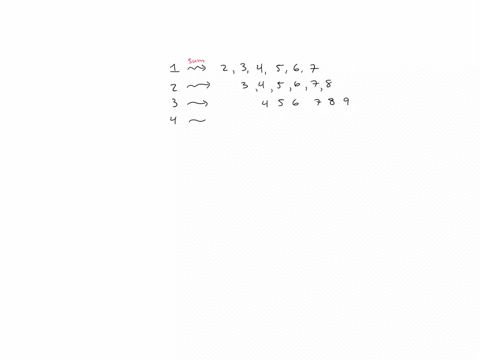 sum
1 ⇝ 2, 3, 4, 5, 6, 7
2 ⇝ 3, 4, 5, 6, 7, 8
3 ⇝ 4 5 6 7 8 9
4 ~